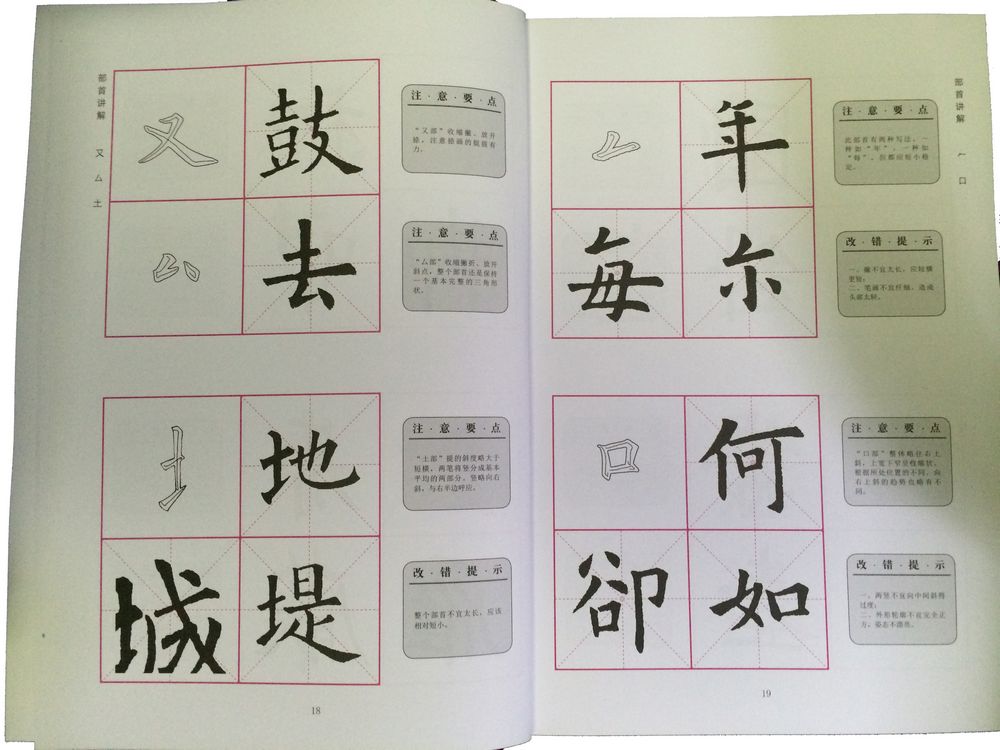 部首讲解 又 厶 土
又 鼓
注·意·要·点
“又部”收缩撇、放开
捺，注意捺画的提顿有
力。
厶 去
注·意·要·点
“厶部”收缩撇折、放开
斜点，整个部首还是保持
一个基本完整的三角形
状。
土 地
注·意·要·点
“土部”提的斜度略大于
短横，两笔将竖分成基本
平均的两部分。竖略向右
斜，与右半边呼应。
城 堤
改·错·提·示
整个部首不宜太长，应该
相对短小。
18
部首讲解 𠂉 口
𠂉 年
注·意·要·点
此部首有两种写法，一
种如“年”，一种如
“每”。但都应短小稳
定。
每 尔
改·错·提·示
一、撇不宜太长，应短横
更短；
二、笔画不宜纤细，造成
头部太轻。
口 何
注·意·要·点
“口部”整体略往右上
斜，上宽下窄呈收缩状。
根据所处位置的不同，向
右上斜的趋势也略有不
同。
卻 如
改·错·提·示
一、两竖不宜向中间斜得
过度；
二、外形轮廓不宜完全正
方，姿态不潇洒。
19